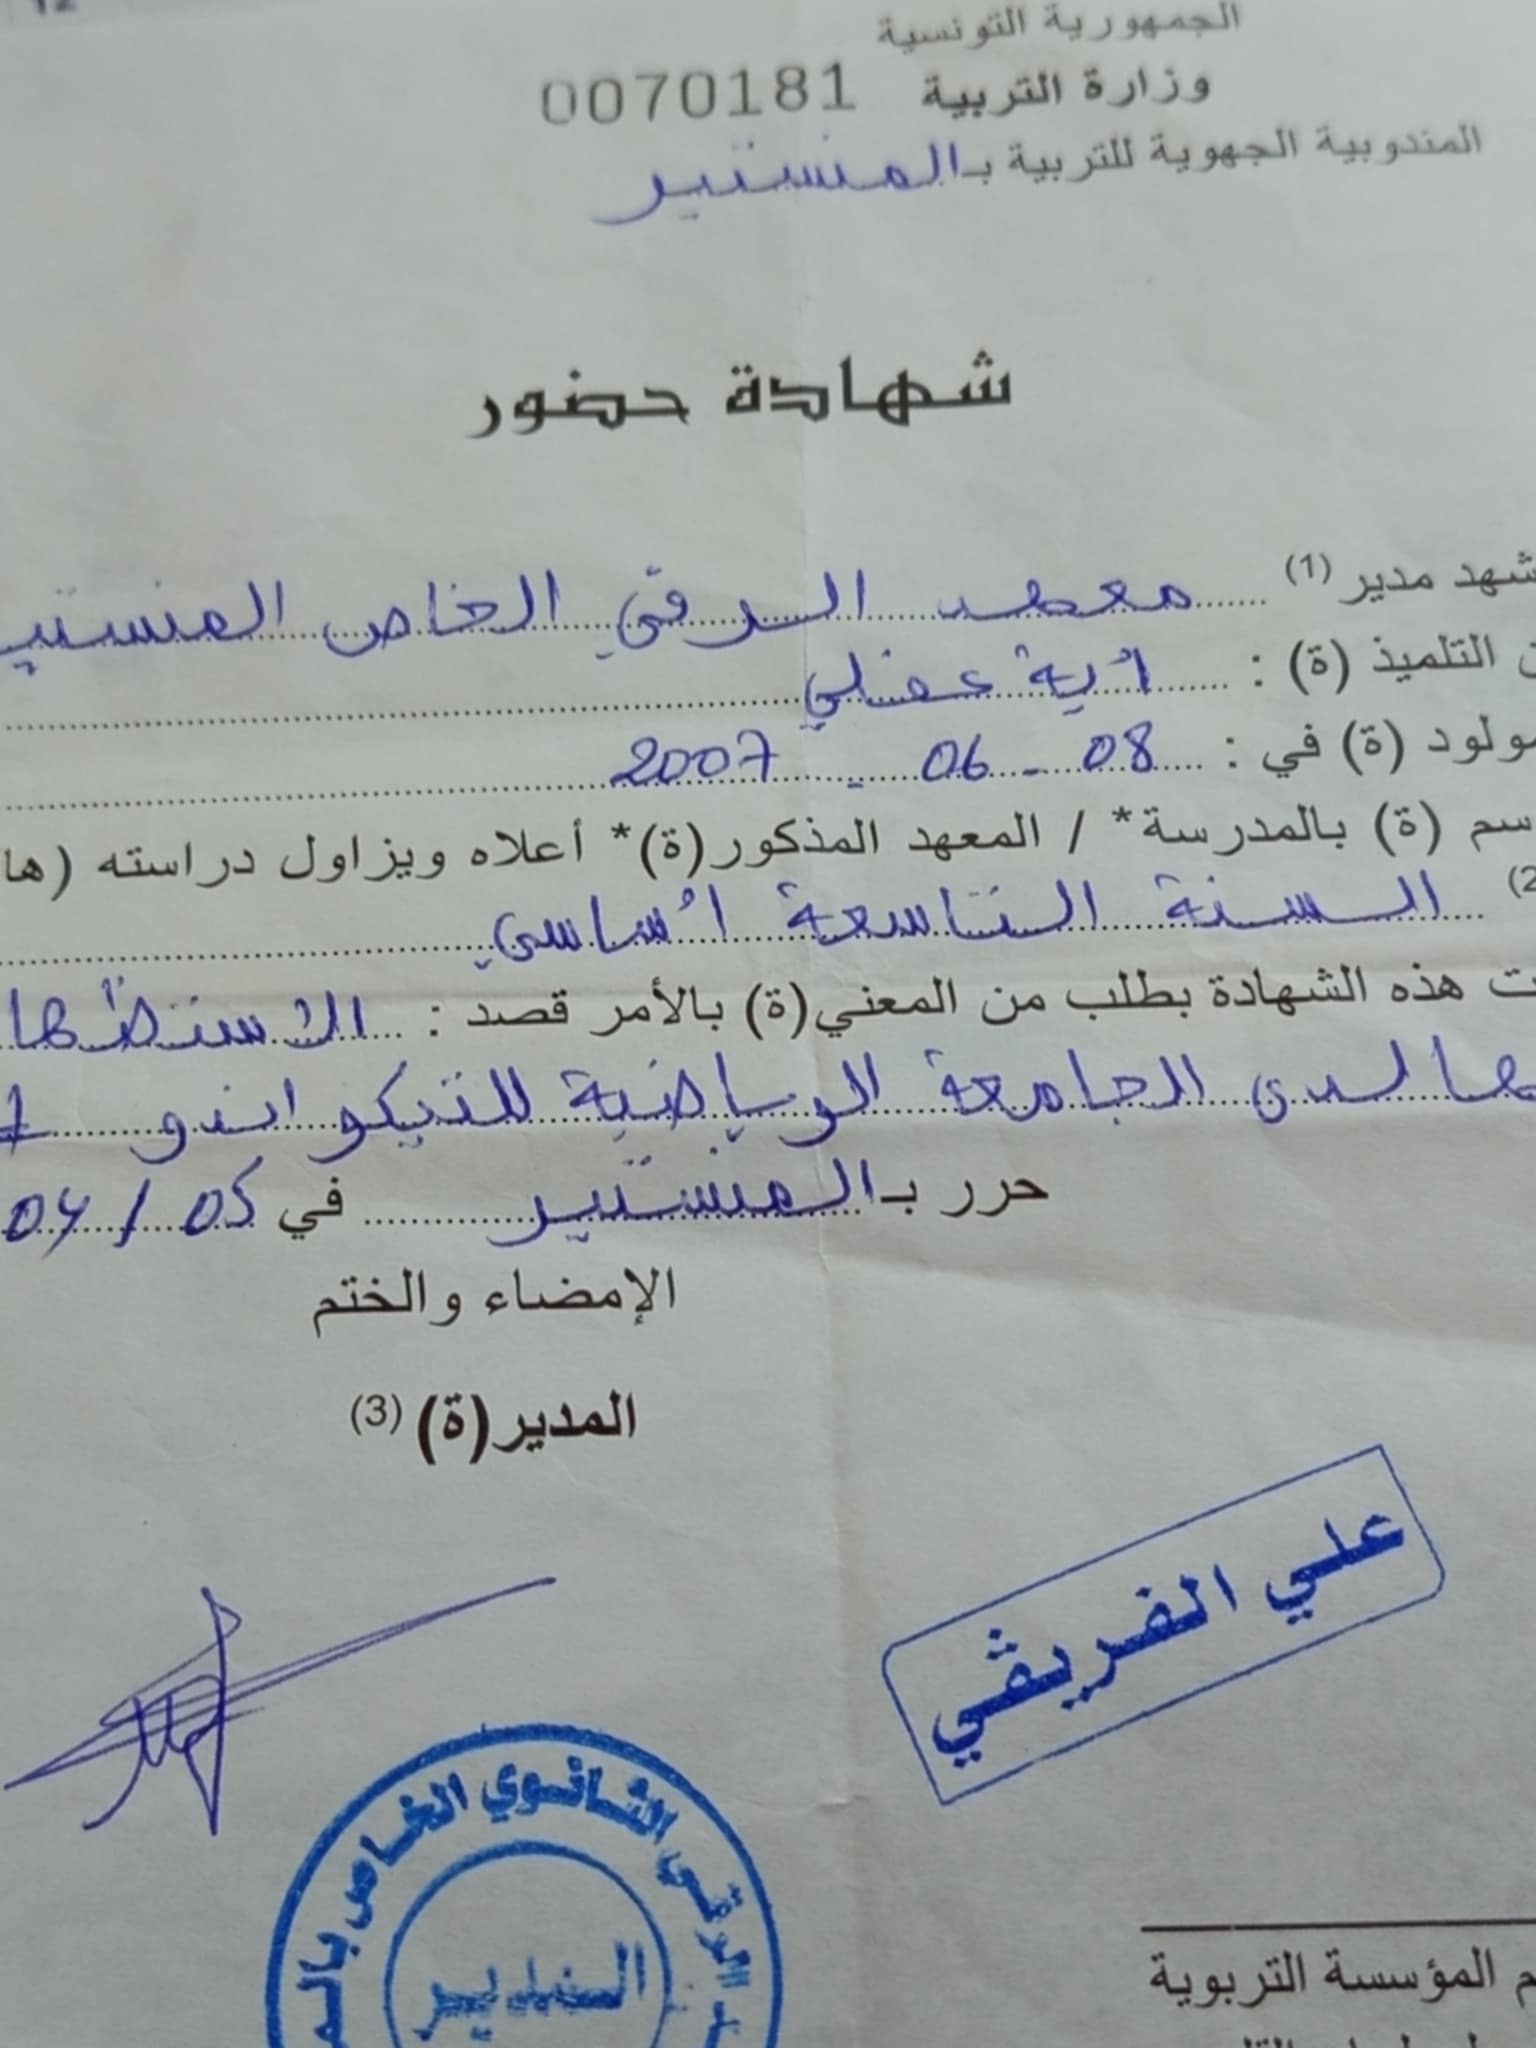 الجمهورية التونسية
وزارة التربية 0070181
المندوبية الجهوية للتربية بـالمنستير
شهادة حضور
شهد مدير (1) معهد الرقي الخاص المنستير
ن التلميذ (ة) : آية عفلي
مولود (ة) في : 08 - 06 - 2007
سم (ة) بالمدرسة* / المعهد المذكور(ة)* أعلاه ويزاول دراسته (ها
(2 السنة التاسعة أساسي
ت هذه الشهادة بطلب من المعني(ة) بالأمر قصد : الاستظها
بها لدى الجامعة الرياضية للتيكواندو
حرر بـالمنستير في 05 / 04
الإمضاء والختم
المدير(ة) (3)
علي الفريقي
الرقي الثانوي الخاص بالم
المدير
م المؤسسة التربوية